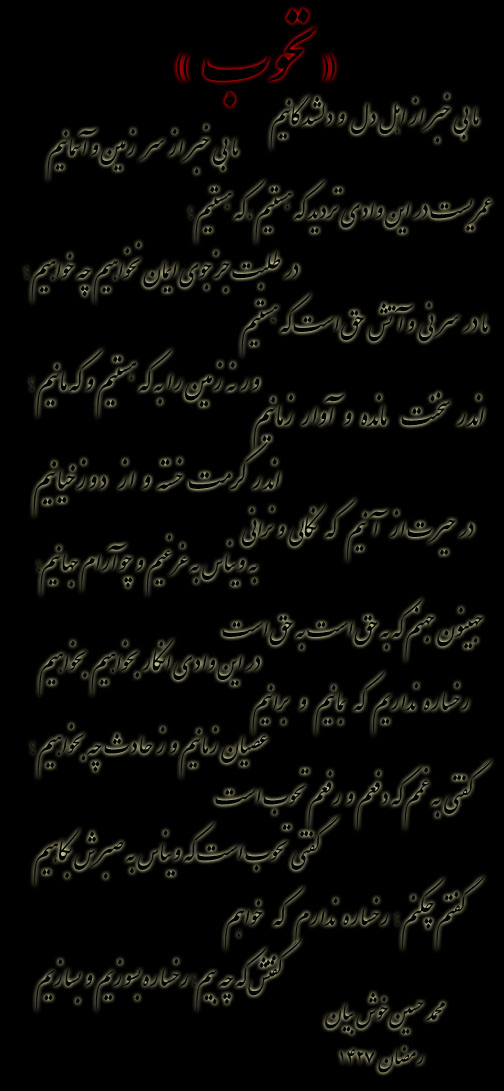 « تحوب »
ما بی خبر از اهل دل و دلشدگانیم
ما بی خبر از سر زمین و آسمانیم
عمریست در این وادی تردید که هستیم ، که هستیم ؛
در طلبت جز جوی ایمان نخواهیم چه خواهیم ؛
ما در سر نی و آتش حق است که هستیم
ور نه زمین را به که هستیم و که مانیم ؛
اندر سخنت مانده و آوار زمانیم
اندر کرمت خسته و از دوزخیانیم
در حیرت از آنیم که نکالی و نرانی
به ویناس به غرغیم و چو آرام جهانیم ؛
جهنم که به حق است به حق است
در این وادی انکار بخواهیم بخواهیم
رخساره نداریم که بمانیم و برانیم
عصیان زمانیم و ز حادث چه بخواهیم ؛
گفتی به غمم که دفعم و رفعم تحوب است
گفتی تحوب است که ویناس به صبرش بکاهیم
گفتم چکنم ؛ رخساره ندارم که خواهم
گفتش که چه بیم رخساره بسوزیم و بسازیم
محمد حسین خوش بیان
رمضان ۱۴۲۷